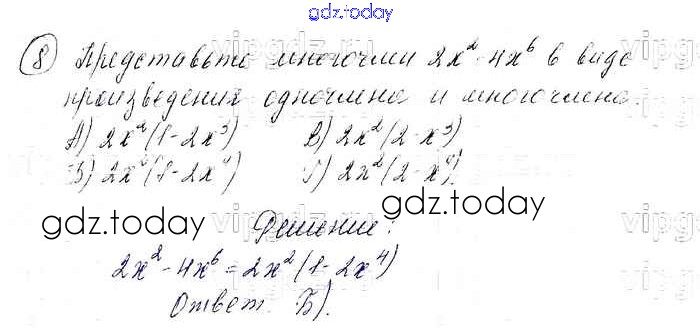 gdz.today
8 Представьте многочлен 2x² - 4x⁶ в виде
произведения одночлена и многочлена.
А) 2x²(1-2x³) В) 2x²(2-x³)
Б) 2x²(1-2x⁴) Г) 2x²(2-x⁴).
gdz.today gdz.today
Решение:
2x² - 4x⁶ = 2x²(1-2x⁴)
Ответ. Б).